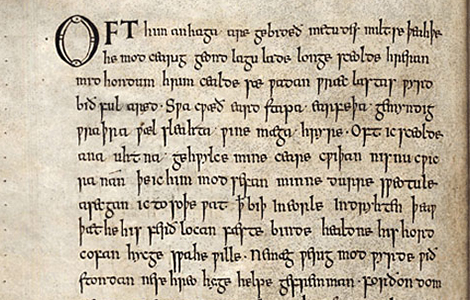 OFT him anhaga are gebideð metudes miltse þeahþe
he mod cearig geond lagu lade longe sceolde hreran
mid hondum hrim cealde sæ ƿadan ƿræc lastas ƿyrd
bið ful aræd · Sƿa cƿæð eard stapa earfeþa gemyndig
ƿraþra ƿæl sleahta ƿine mæga hryre · Oft ic sceolde
ana uhtna gehƿylce mine ceare cƿiþan nis nu cƿic
ra nan þe ic him mod sefan minne durre sƿeotule
asecgan ic to soþe ƿat ꝥ biþ in eorle indryhten þeaƿ
þæt he his ferð locan fæste binde healdne his hord
cofan hycge sƿa he ƿille · Ne mæg ƿerig mod ƿyrde ƿið
stondan ne se hreo hyge helpe gefremman · Forðon dom